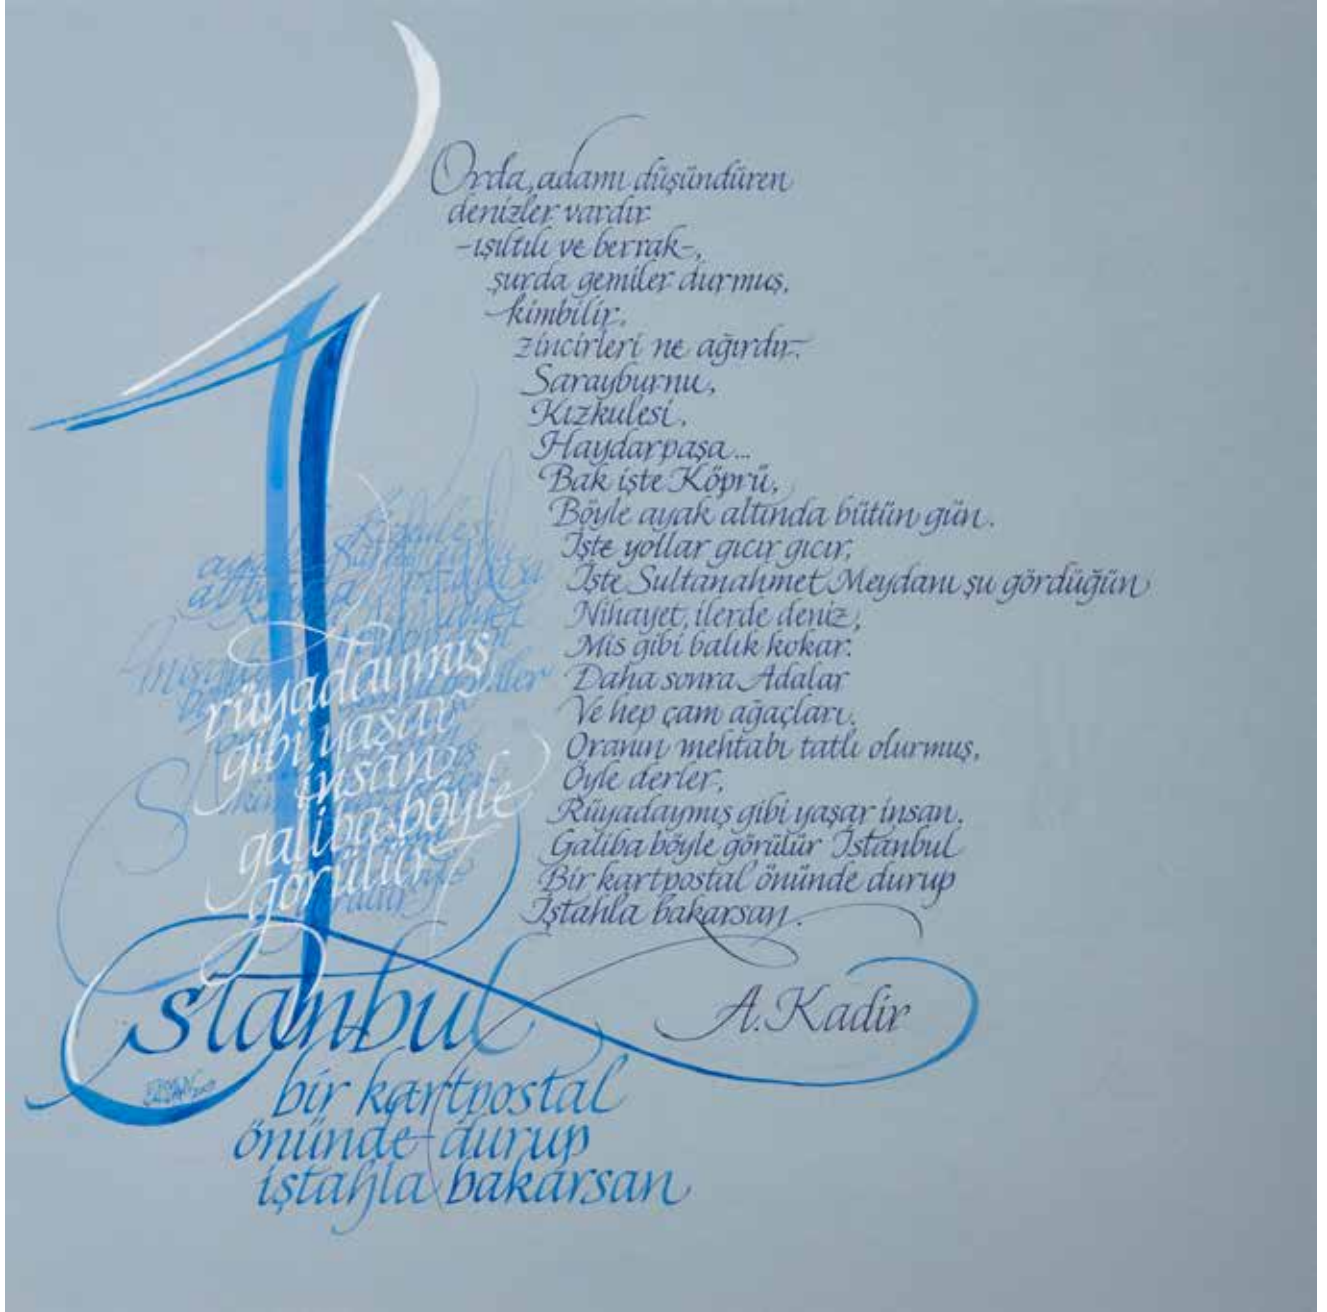 Orda, adamı düşündüren
denizler vardır
-ışıltılı ve berrak-,
şurda gemiler durmuş,
kimbilir,
zincirleri ne ağırdır.
Sarayburnu,
Kızkulesi,
Haydarpaşa...
Bak işte Köprü,
Böyle ayak altında bütün gün.
İşte yollar gıcır gıcır,
İşte Sultanahmet Meydanı şu gördüğün
Nihayet, ilerde deniz,
Mis gibi balık kokar.
Daha sonra Adalar
Ve hep çam ağaçları.
Oranın mehtabı tatlı olurmuş,
Öyle derler,
Rüyadaymış gibi yaşar insan.
Galiba böyle görülür İstanbul
Bir kartpostal önünde durup
İştahla bakarsan.
A. Kadir
rüyadaymış
gibi yaşar
insan
galiba böyle
görülür
İstanbul
bir kartpostal
önünde durup
iştahla bakarsan